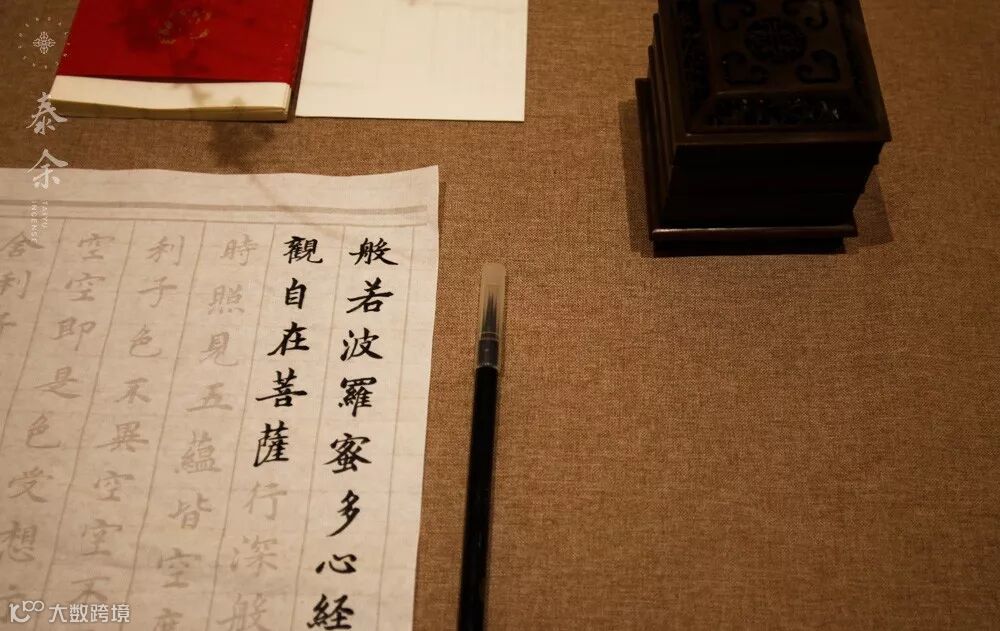 般若波羅蜜多心経
觀自在菩薩行深般
時照見五蘊皆空度
利子色不異空空不
空空即是色受想
舍利子
泰余
TAIYU INCENSE
大数跨境